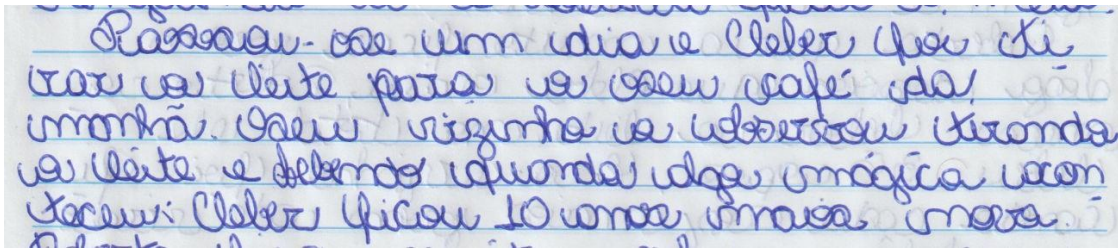 Passou-se um dia e Cleber foi ti
rar o leite para o seu café da
manhã. Seu vizinho o observou tirando
o leite e bebendo quando algo mágico acon
teceu: Cleber ficou 10 anos mais novo.